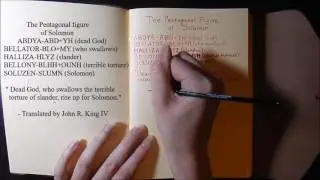 The Pentagonal figure
of Solomon
ABDYA-ABD=YH (dead God)
BELLATOR-BLO=MY (who swallows)
HALLIZA-HLYZ (slander)
BELLONY-BLHH+OUNH (terrible torture)
SOLUZEN-SLUMN (Solomon)
" Dead God, who swallows the terrible
torture of slander, rise up for Solomon."
- Translated by John R. King IV
The Pentagonal Figure
of Solomon
ABDYA-ABD=YH (dead God)
BELLATOR-BLO=MY (who swallows)
HALLIZA